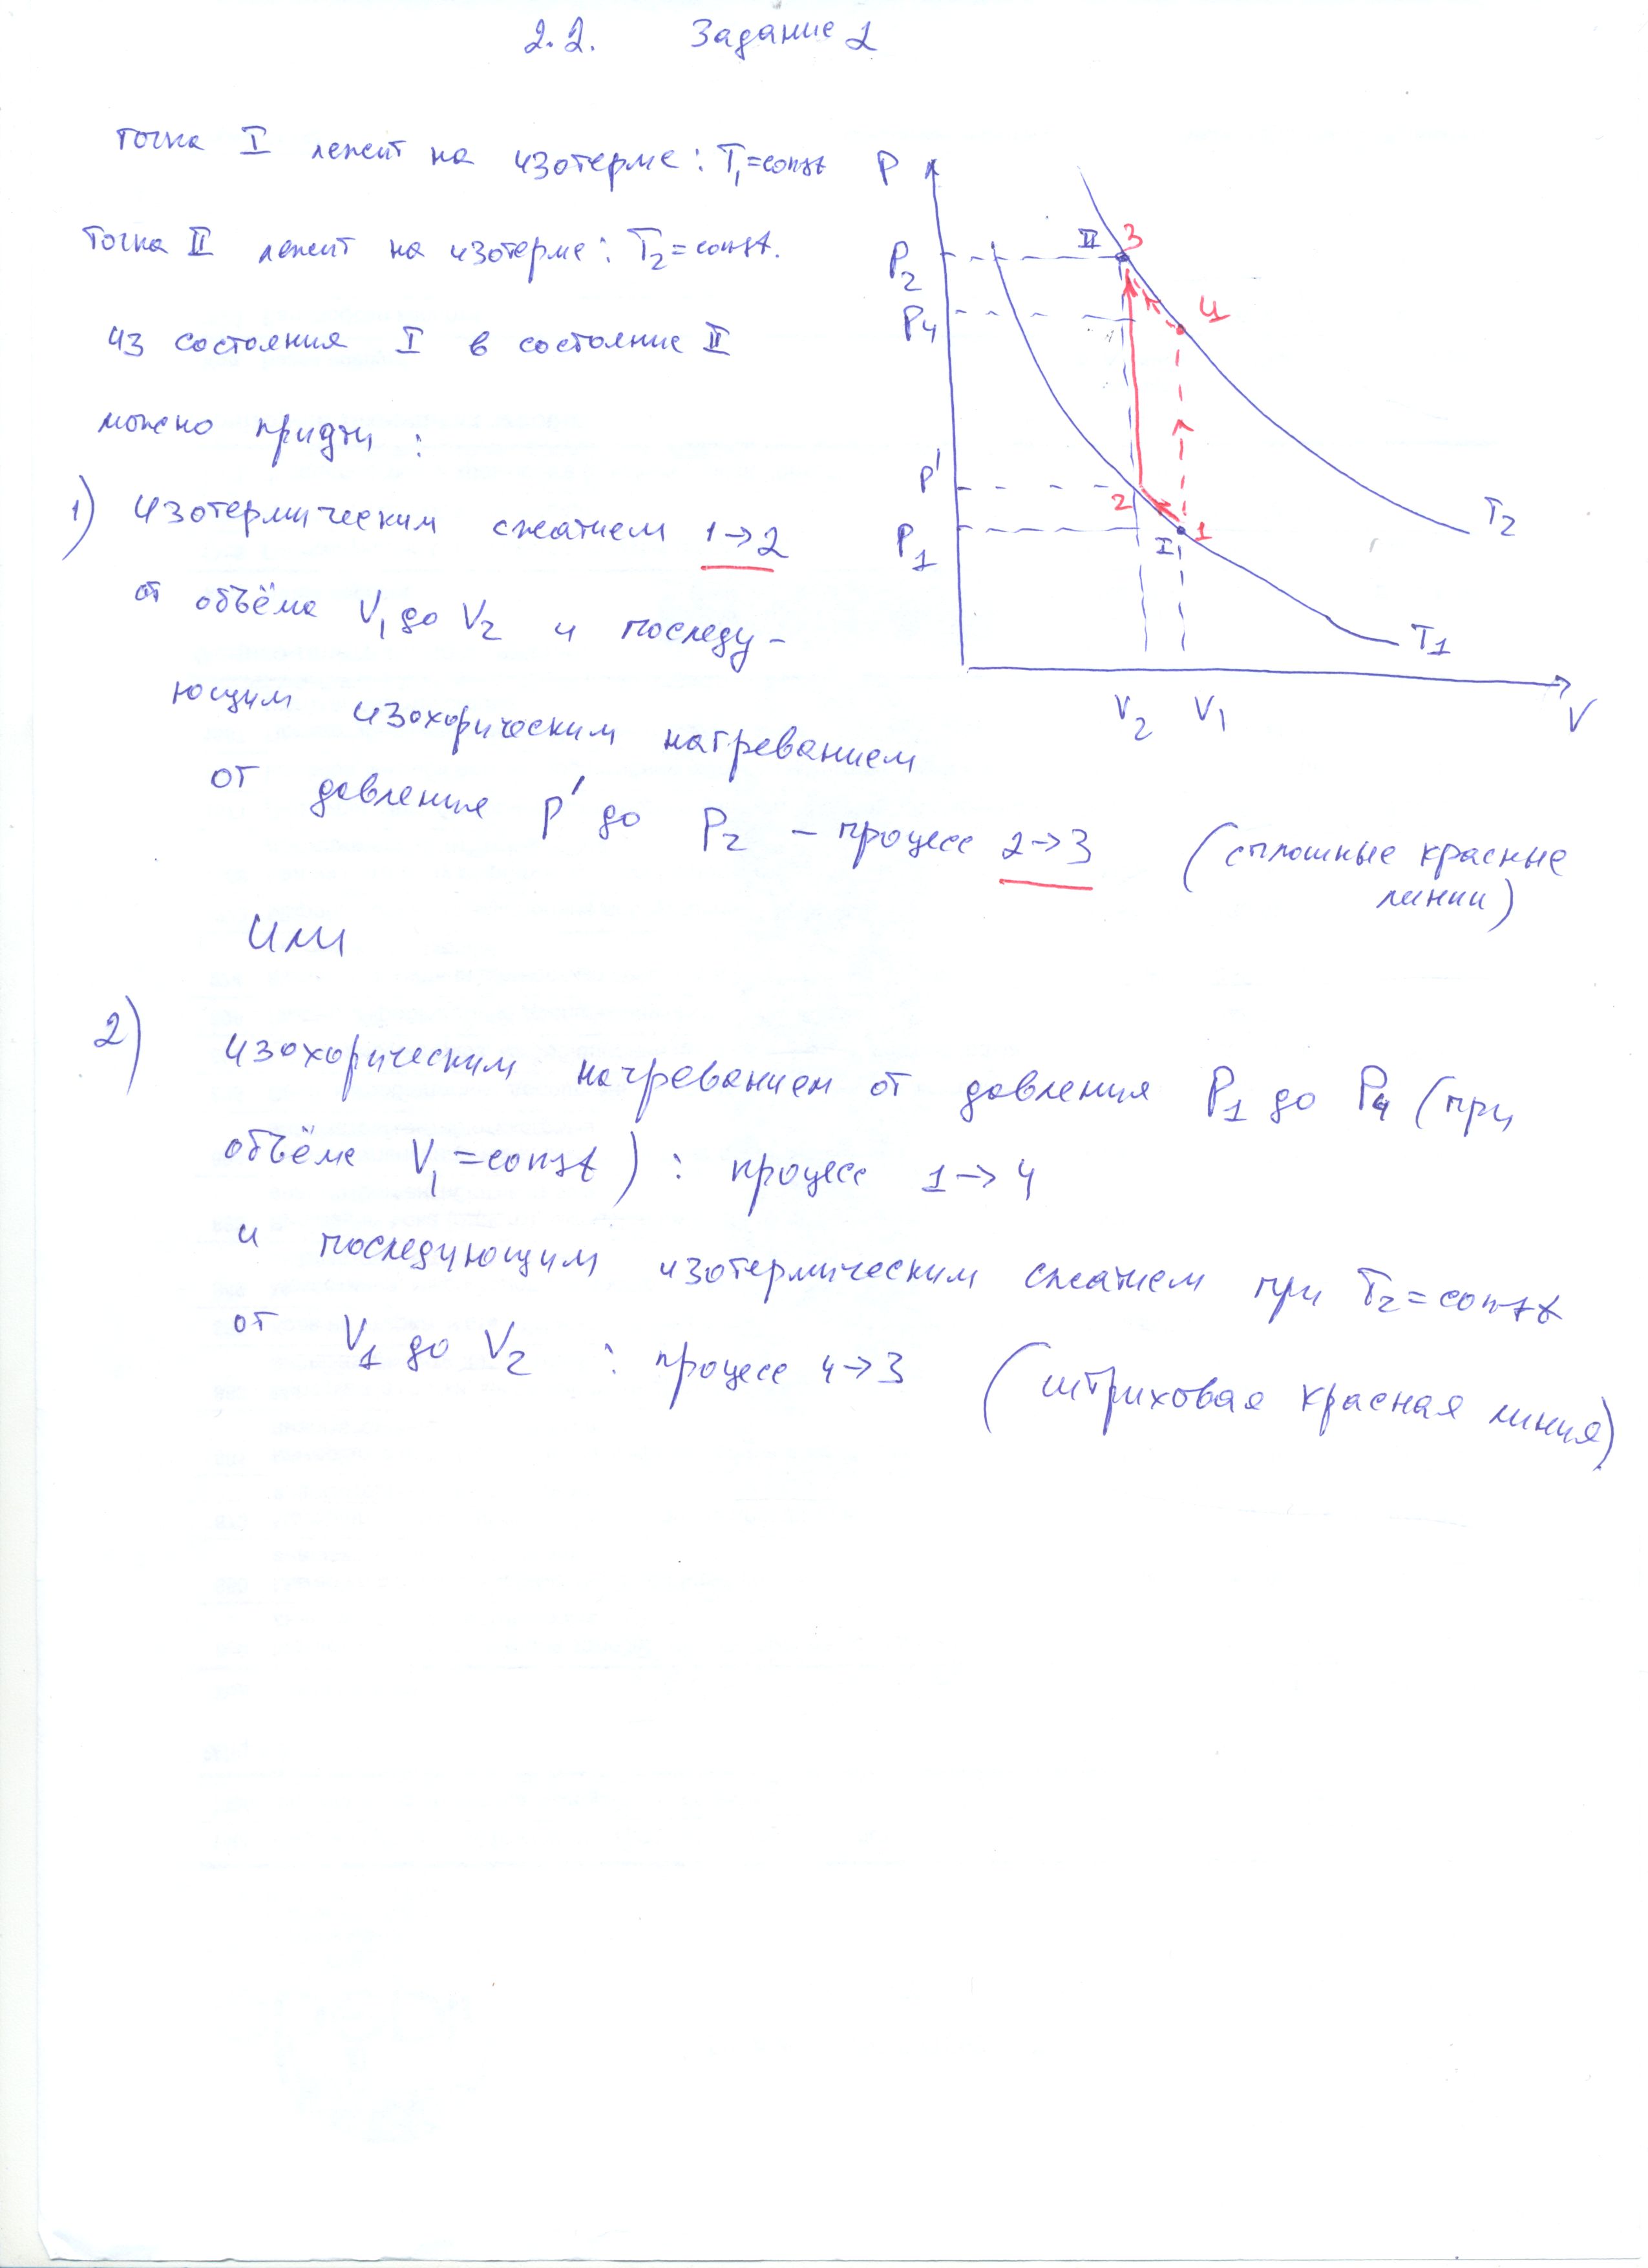 2.2. Задание 1
точка I лежит на изотерме: T₁=const
точка II лежит на изотерме: T₂=const.
из состояния I в состояние II
можно придти:
1) изотермическим сжатием 1→2
от объёма V₁ до V₂ и последу-
ющим изохорическим нагреванием
от давления P' до P₂ – процесс 2→3 (сплошные красные
линии)
Или
2) изохорическим нагреванием от давления P₁ до P₄ (при
объёме V₁=const): процесс 1→4
и последующим изотермическим сжатием при T₂=const
от V₁ до V₂ : процесс 4→3 (штриховая красная линия)
P
II 3
P₂
4
P₄
P'
2
T₂
P₁
I 1
T₁
V₂ V₁
V